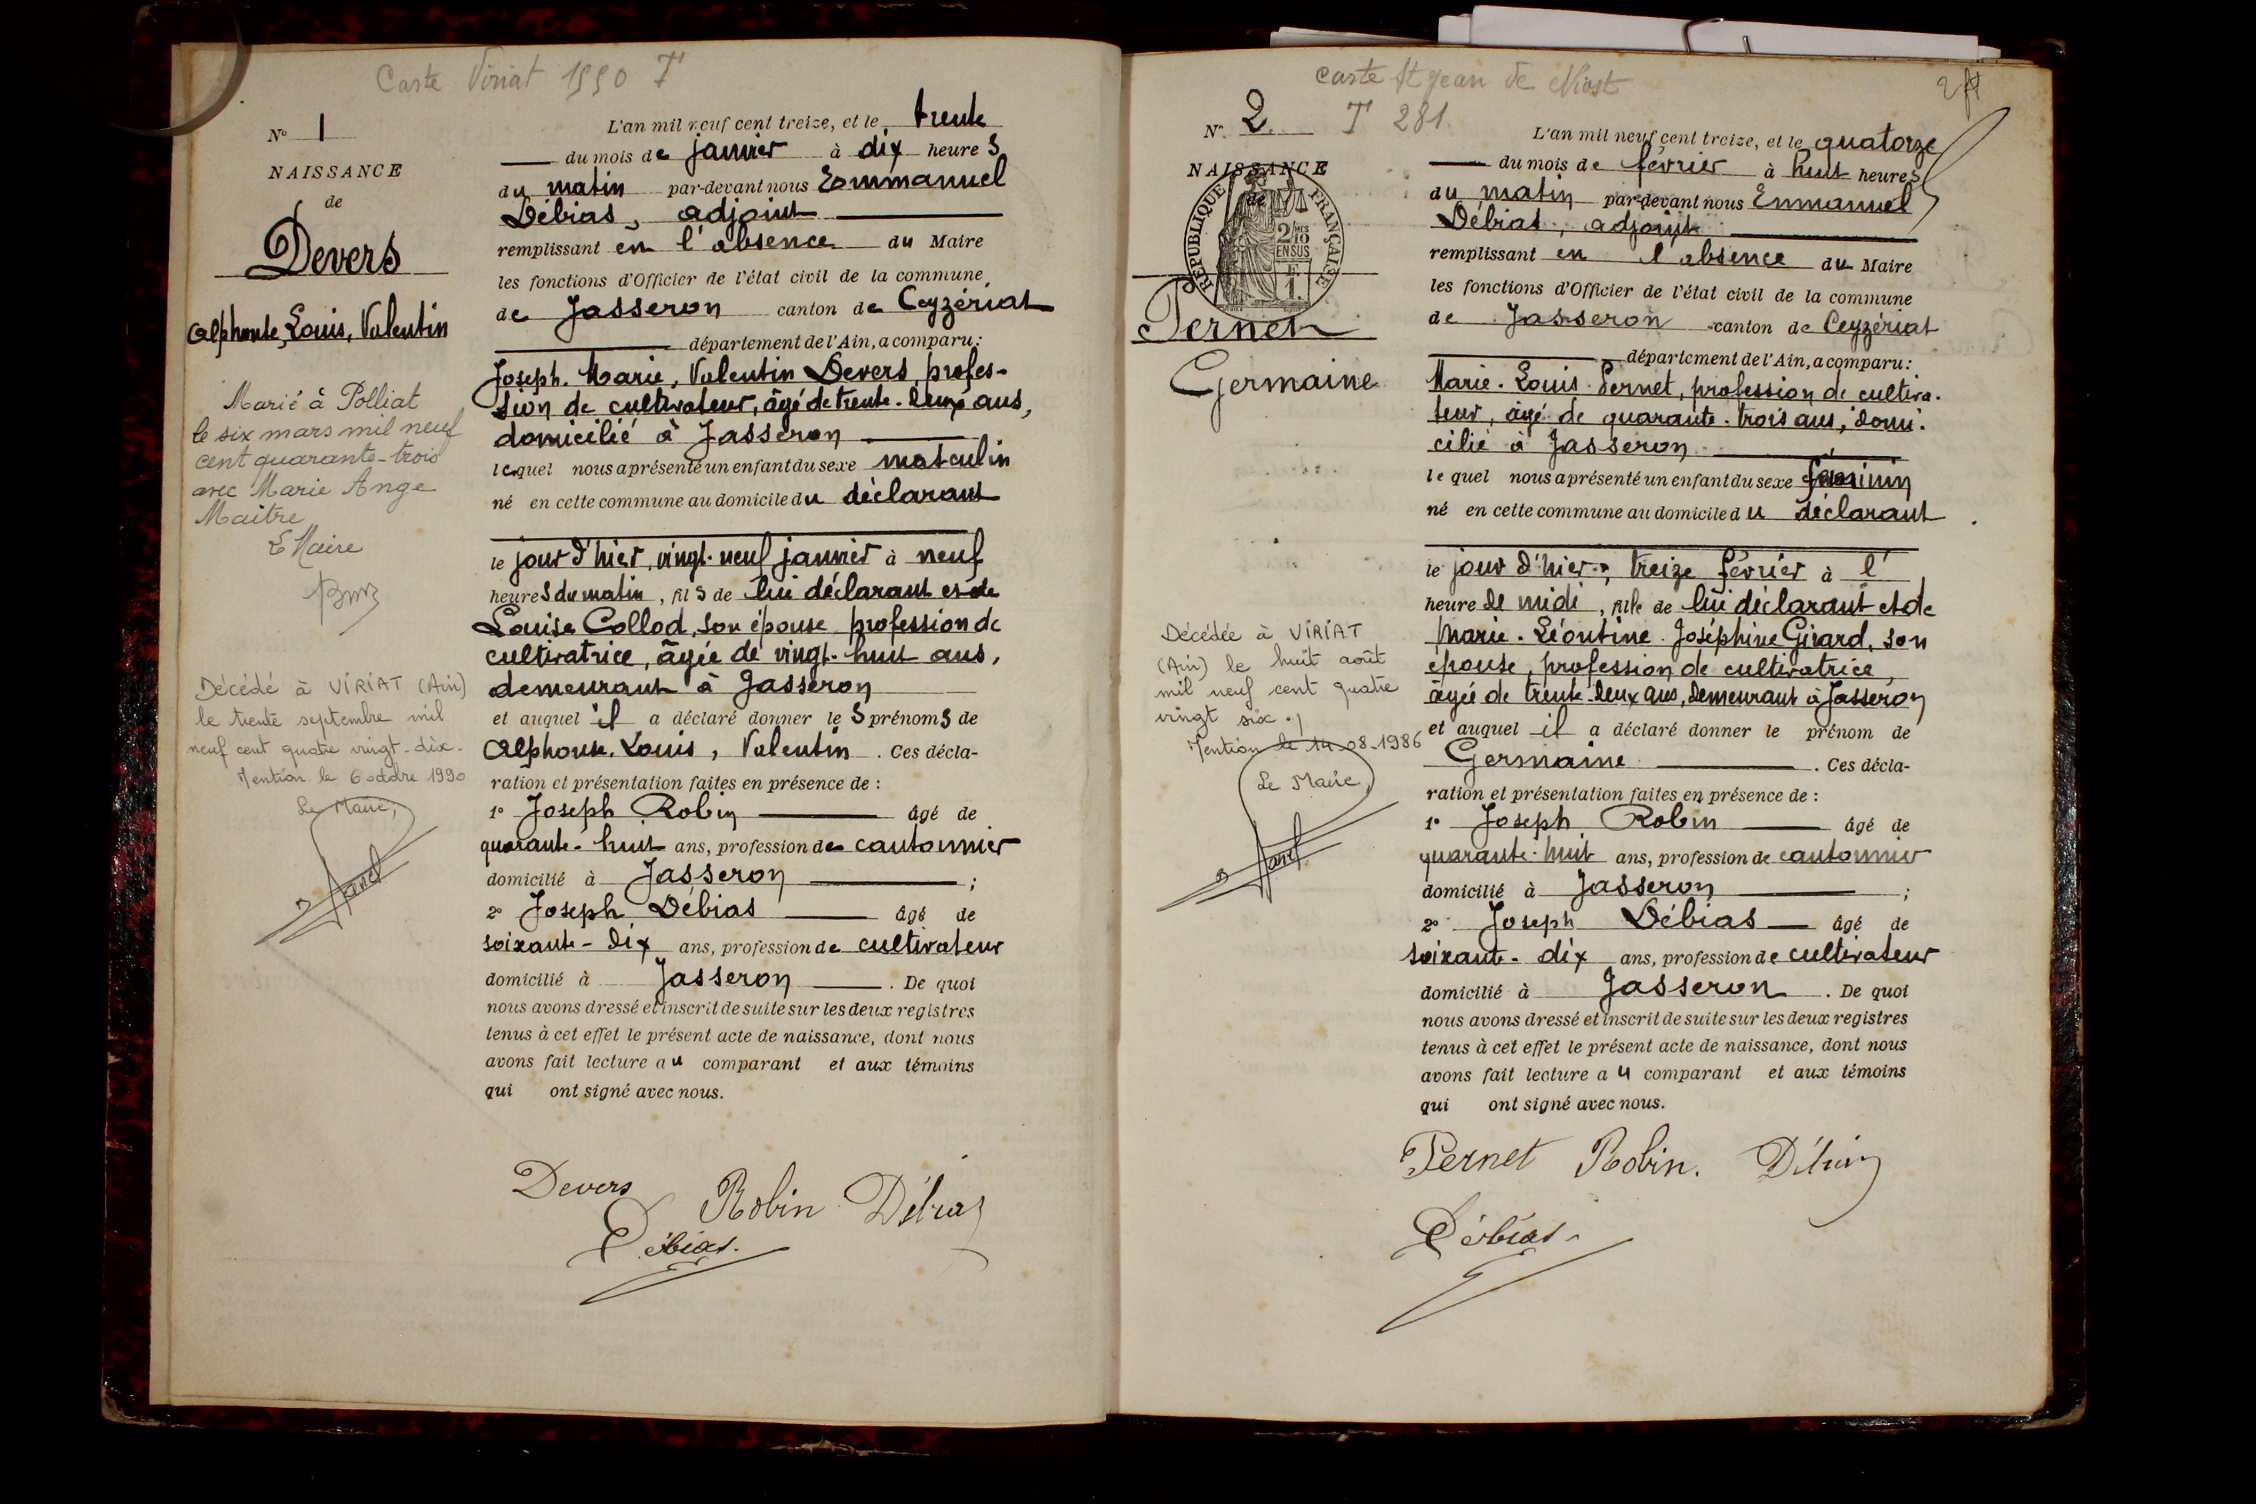 Carte Viriat 1990 T
N° 1
NAISSANCE
de
Devers
Alphonse, Louis, Valentin
Marié à Polliat
le six mars mil neuf
cent quarante-trois
avec Marie Ange
Maitre
Le Maire
Décédé à VIRIAT (Ain)
le trente septembre mil
neuf cent quatre vingt-dix.
Mention le 6 octobre 1990
Le Maire,
L'an mil neuf cent treize, et le trente
du mois de janvier à dix heures
du matin par-devant nous Emmanuel
Débias, adjoint
remplissant en l'absence du Maire
les fonctions d'Officier de l'état civil de la commune
de Jasseron canton de Ceyzériat
département de l'Ain, a comparu:
Joseph. Marie, Valentin Devers, profes-
sion de cultivateur, âgé de trente-deux ans,
domicilié à Jasseron
lequel nous a présenté un enfant du sexe masculin
né en cette commune au domicile du déclarant
le jour d'hier, vingt-neuf janvier à neuf
heures du matin, fils de lui déclarant et de
Louise Collod, son épouse profession de
cultivatrice, âgée de vingt-huit ans,
demeurant à Jasseron
et auquel il a déclaré donner les prénoms de
Alphonse. Louis, Valentin. Ces décla-
ration et présentation faites en présence de :
1° Joseph Robin âgé de
quarante-huit ans, profession de cantonnier
domicilié à Jasseron ;
2° Joseph Débias âgé de
soixante-dix ans, profession de cultivateur
domicilié à Jasseron. De quoi
nous avons dressé et inscrit de suite sur les deux registres
tenus à cet effet le présent acte de naissance, dont nous
avons fait lecture au comparant et aux témoins
qui ont signé avec nous.
Devers Robin Débias
Débias.
Carte St Jean de Niost
T 281
N° 2
NAISSANCE
de
RÉPUBLIQUE FRANÇAISE
2/10
EN SUS
Pernet
Germaine
Décédée à VIRIAT
(Ain) le huit août
mil neuf cent quatre
vingt six.
Mention le 14-08-1986
Le Maire,
L'an mil neuf cent treize, et le quatorze
du mois de février à huit heures
du matin par-devant nous Emmanuel
Débias, adjoint
remplissant en l'absence du Maire
les fonctions d'Officier de l'état civil de la commune
de Jasseron canton de Ceyzériat
département de l'Ain, a comparu:
Marie. Louis. Pernet, profession de cultiva-
teur, âgé de quarante-trois ans, domi-
cilié à Jasseron
lequel nous a présenté un enfant du sexe féminin
né en cette commune au domicile du déclarant
le jour d'hier, treize février à l'
heure de midi, fille de lui déclarant et de
Marie. Léontine. Joséphine Girard, son
épouse, profession de cultivatrice,
âgée de trente-deux ans, demeurant à Jasseron
et auquel il a déclaré donner le prénom de
Germaine. Ces décla-
ration et présentation faites en présence de :
1° Joseph Robin âgé de
quarante-huit ans, profession de cantonnier
domicilié à Jasseron ;
2° Joseph Débias âgé de
soixante-dix ans, profession de cultivateur
domicilié à Jasseron. De quoi
nous avons dressé et inscrit de suite sur les deux registres
tenus à cet effet le présent acte de naissance, dont nous
avons fait lecture au comparant et aux témoins
qui ont signé avec nous.
Pernet Robin. Débias
Débias.